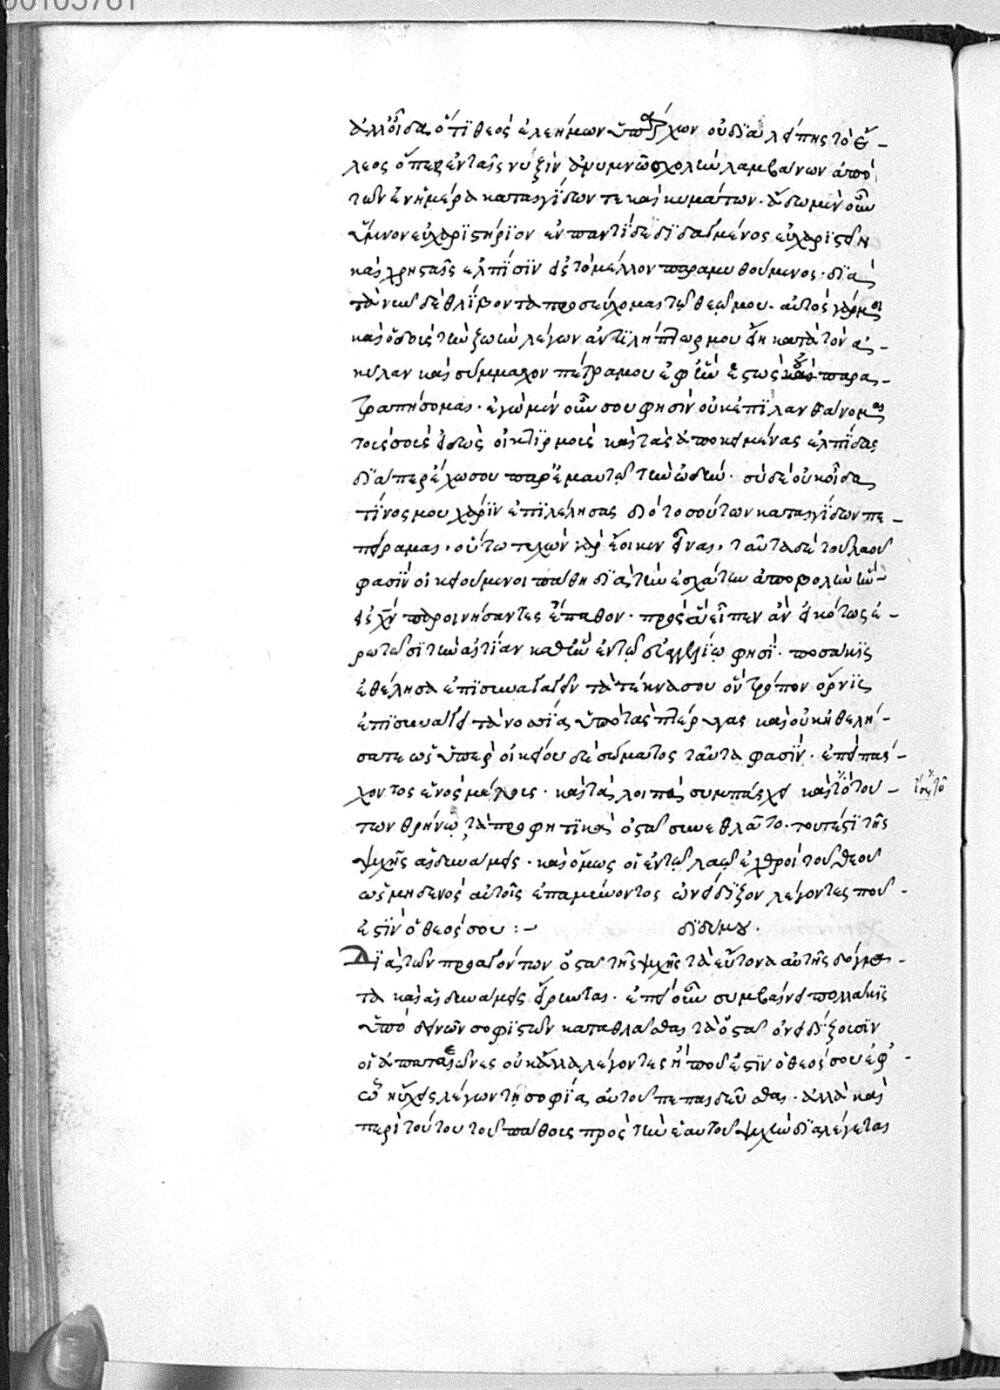 00105761
ἀλλ' οἶδα ὅτι θεὸς ἐλεήμων ὑπάρχων οὐ διαλείπῃς τὸ ἔ-
λεος ὅπερ ἐν ταῖς νυξὶν ἀνυμνῶ σχολὴν λαμβάνων ἀπὸ
τῶν ἐν ἡμέρᾳ καταιγίδων τε καὶ κυμάτων. ᾄδω μὲν οὖν
ὕμνον εὐχαριστήριον ἐν παντὶ δεδιδαγμένος εὐχαριστεῖν
καὶ χρησταῖς ἐλπίσιν εἰς τὸ μέλλον παραμυθούμενος. διὰ
τὰ νῦν δὲ θλίβοντα προσεύχομαι τῷ θεῷ μου. αὐτὸς γάρ μοι
καὶ ὁδὸς τὴν ζωὴν λέγων ἀντιλήπτωρ μου εἶ κατὰ τὸν ἀ-
κύλαν καὶ σύμμαχον πέτρα μου ἐφ' ἣν ἑστὼς οὐ παρα-
τραπήσομαι. ἐγὼ μὲν οὖν σου φησὶν οὐκ ἐπιλανθάνομαι
τοῖς σοῖς εἰδὼς οἰκτιρμοῖς καὶ τὰς ἀποκειμένας ἐλπίδας
δι' ἅπερ ἔχω σου παρ' ἐμαυτῷ τὴν ᾠδήν. σὺ δὲ οὐκ οἶδα
τίνος μου χάριν ἐπιλέλησαι διὸ τοσούτων καταιγίδων πε-
πείραμαι. οὕτω τυχὼν γὰρ ἔοικεν εἶναι. ταῦτα δὲ τοῦ λαοῦ
φασὶν οἰκειούμενοι πάθη διὰ τὴν ἐσχάτην ἀποβολὴν ἣν
εἰς χν παροινήσαντες ἔπαθον. πρὸς ἃ εἶπεν ἂν εἰκότως ἐ-
ρωτῶσι τὴν αἰτίαν καθ' ἣν ἐν τῷ εὐαγγελίῳ φησί. ποσάκις
ἐθέλησα ἐπισυναγαγεῖν τὰ τέκνα σου ὃν τρόπον ὄρνις
ἐπισυνάγει τὰ νοσσία ὑπὸ τὰς πτέρυγας καὶ οὐκ ἠθελή-
σατε ὡς ὑπὲρ οἰκείου δὲ σώματος ταῦτα φασίν. ἐπεὶ πάσ-
χοντος ἑνὸς μέλους. καὶ τὰ λοιπὰ συμπάσχει καὶ τὸ τού-
των θρήνων τὰ προφητικὰ ὀστᾶ συνεθλᾶτο. τουτέστι τῆς
ψυχῆς αἱ δυνάμεις. καὶ ὅμως οἱ ἐν τῷ λαῷ ἐχθροὶ τοῦ θεοῦ
ὡς μηδενὸς αὐτοῖς ἐπαμύνοντος ὠνείδιζον λέγοντες ποῦ
ἐστὶν ὁ θεός σου :- διδύμου.
Διὰ τῶν προαγόντων ὀστᾶ τῆς ψυχῆς τὰ εὔτονα αὐτῆς δόγμα-
τα καὶ αἱ δυνάμεις εἴρηνται. ἐπεὶ οὖν συμβαίνει πολλάκις
ὑπὸ δεινῶν σοφιστῶν καταθλᾶσθαι τὰ ὀστᾶ ὀνειδίζουσιν
οἱ ἀπατεῶνες οὐκ ἄλλα λέγοντες ἢ ποῦ ἐστὶν ὁ θεός σου ἐφ'
ᾧ ηὔχεις λέγων τῇ σοφίᾳ αὐτοῦ πεπαιδεῦσθαι. ἀλλὰ καὶ
περὶ τούτου τοῦ πάθους πρὸς τὴν ἑαυτοῦ ψυχὴν διαλέγεται